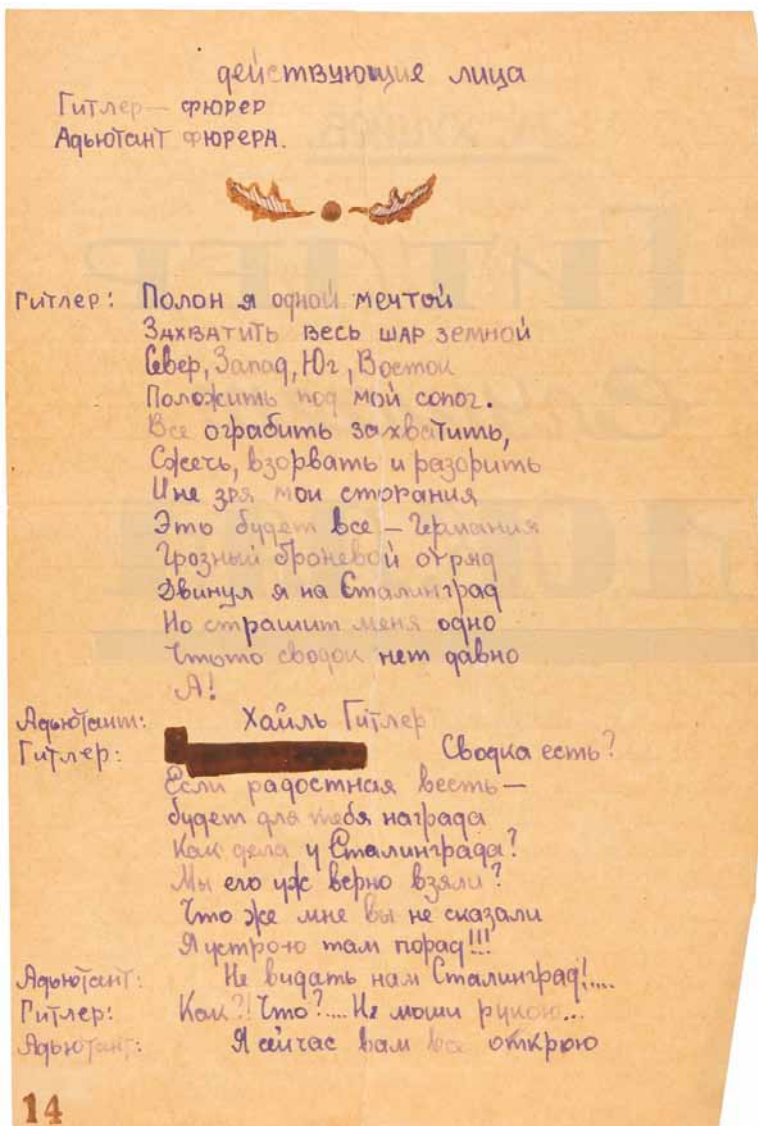 действующие лица
Гитлер — фюрер
Адьютант фюрера.
Гитлер: Полон я одной мечтой
Захватить весь шар земной
Север, Запад, Юг, Восток
Положить под мой сопог.
Все ограбить захватить,
Сжечь, взорвать и разорить
И не зря мои сторания
Это будет все — Германия
Грозный броневой отряд
Двинул я на Сталинград
Но страшит меня одно
Что то сводок нет давно
А!
Адьютант: Хайль Гитлер
Гитлер: Сводка есть?
Если радостная весть —
будет для тебя награда
Как дела у Сталинграда?
Мы его уж верно взяли?
Что же мне вы не сказали
Я устрою там порад!!!
Адьютант: Не видать нам Сталинград!....
Гитлер: Как?! Что?.... Не маши рукою...
Адьютант: Я сичас вам все открою
14